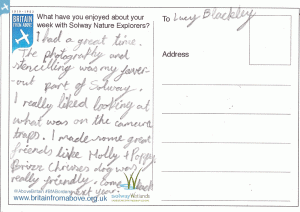 BRITAIN FROM ABOVE
What have you enjoyed about your
week with Solway Nature Explorers?
I had a great time.
The photography and
stencilling was my faver-
out part of Solway.
I really liked looking at
what was on the camera
traps. I made some great
friends like Molly + Poppy
Chrises dog was
really friendly. come back
next year.
www.britainfromabove.org.uk
To Lucy Blackley
Address